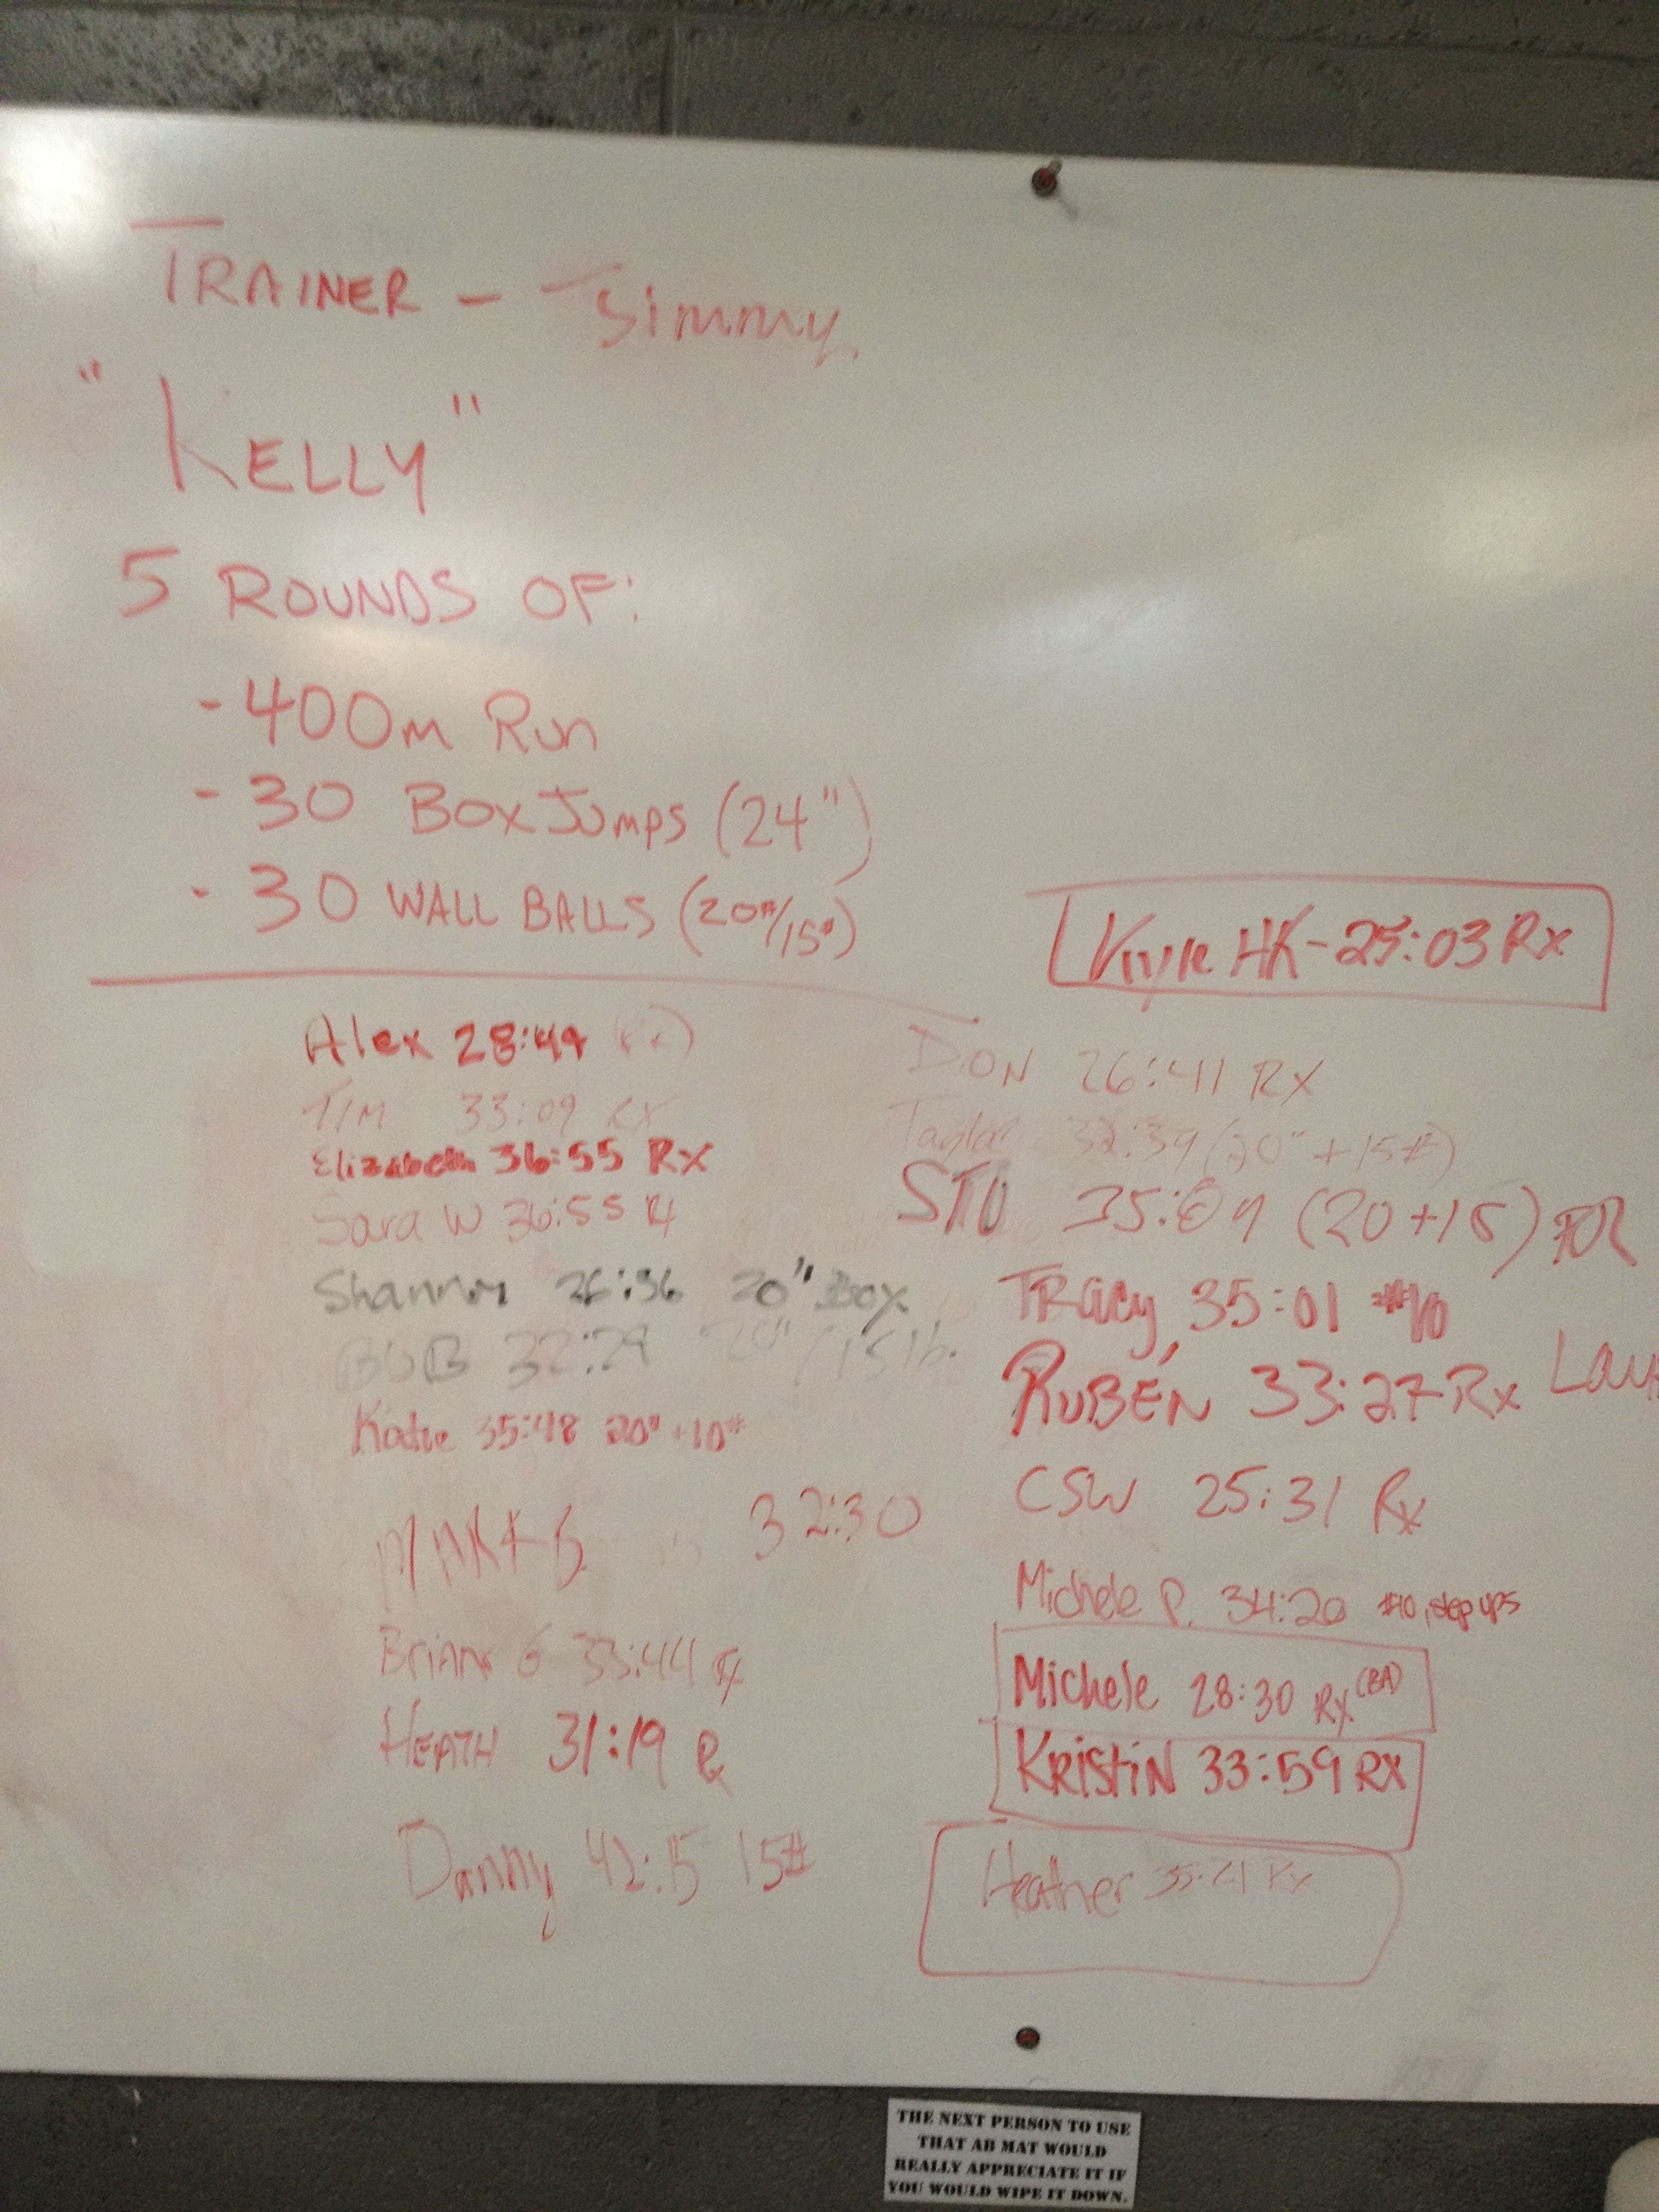 TRAINER - Jimmy
"KELLY"
5 ROUNDS OF:
- 400m Run
- 30 Box Jumps (24")
- 30 WALL BALLS (20#/15#)
Kyle HK - 25:03 Rx
Alex 28:49 (Rx)
Tim 33:09 RX
Elizabeth 36:55 Rx
Sara W 36:55 Rx
Shannon 26:36 20" Box
BOB 32:29 20"/15lb.
Katie 35:48 20" + 10#
MARK B 32:30
Brian G 33:44 Rx
HEATH 31:19 Rx
Danny 42:15 15#
DON 26:41 RX
Taylor (20" + 15#)
STU (20+15) PR
TRacy 35:01 #10
RUBÉN 33:27 Rx
CSW 25:31 Rx
Michele P. 34:20 #10, step ups
Michele 28:30 Rx (BA)
KRistiN 33:59 RX
Heather 35:21 Rx
THE NEXT PERSON TO USE
THAT AB MAT WOULD
REALLY APPRECIATE IT IF
YOU WOULD WIPE IT DOWN.